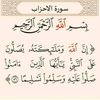 سورة الاحزاب
بِسْمِ اللَّهِ الرَّحْمَنِ الرَّحِيمِ
إِنَّ اللَّهَ وَمَلَٰٓئِكَتَهُۥ يُصَلُّونَ
عَلَى النَّبِيِّ يَٰٓأَيُّهَا الَّذِينَ ءَامَنُوا۟ صَلُّوا۟
عَلَيْهِ وَسَلِّمُوا۟ تَسْلِيمًا ٥٦